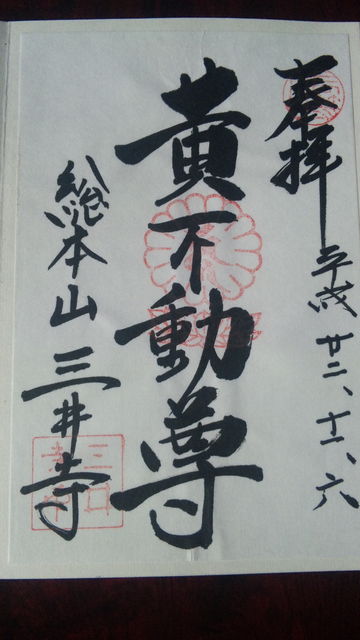 奉拝 平成廿三、十一、六
黄不動尊
総本山 三井寺